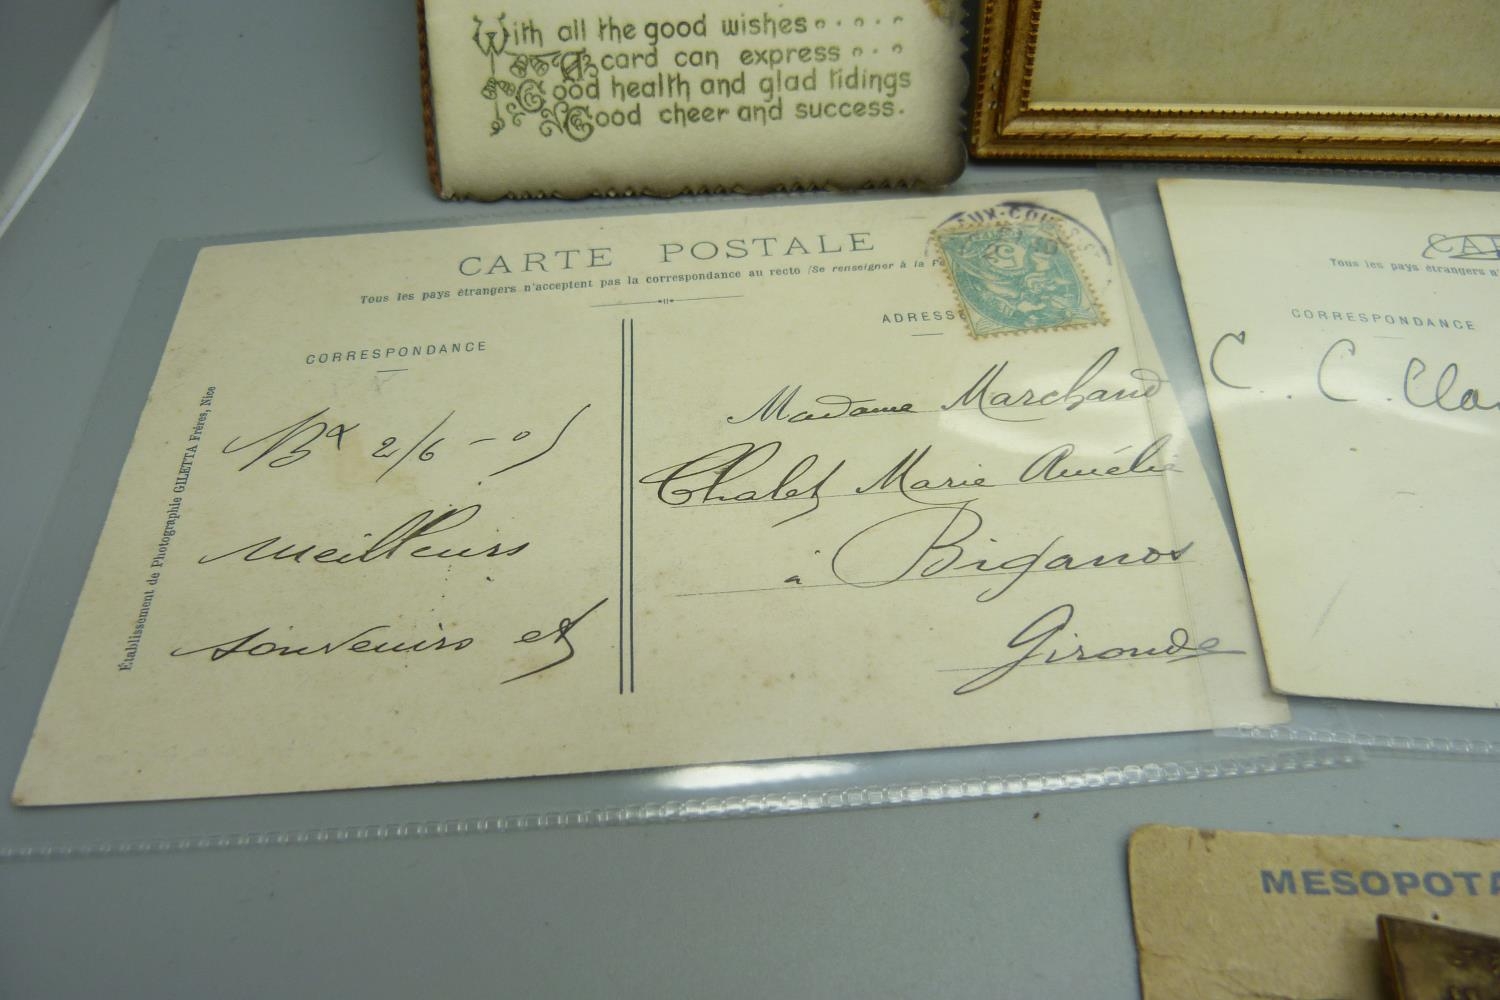 With all the good wishes
A card can express
Good health and glad tidings
Good cheer and success.
CARTE POSTALE
Tous les pays étrangers n'acceptent pas la correspondance au recto (Se renseigner à la
CORRESPONDANCE
ADRESSE
Bx 2/6 - 05
meilleurs
souvenirs et
Madame Marchand
Chalet Marie Amélie
à Biganos
Gironde
Établissement de Photographie GILETTA Frères, Nice
Tous les pays étrangers
CORRESPONDANCE
C. C.
MESOPOTA